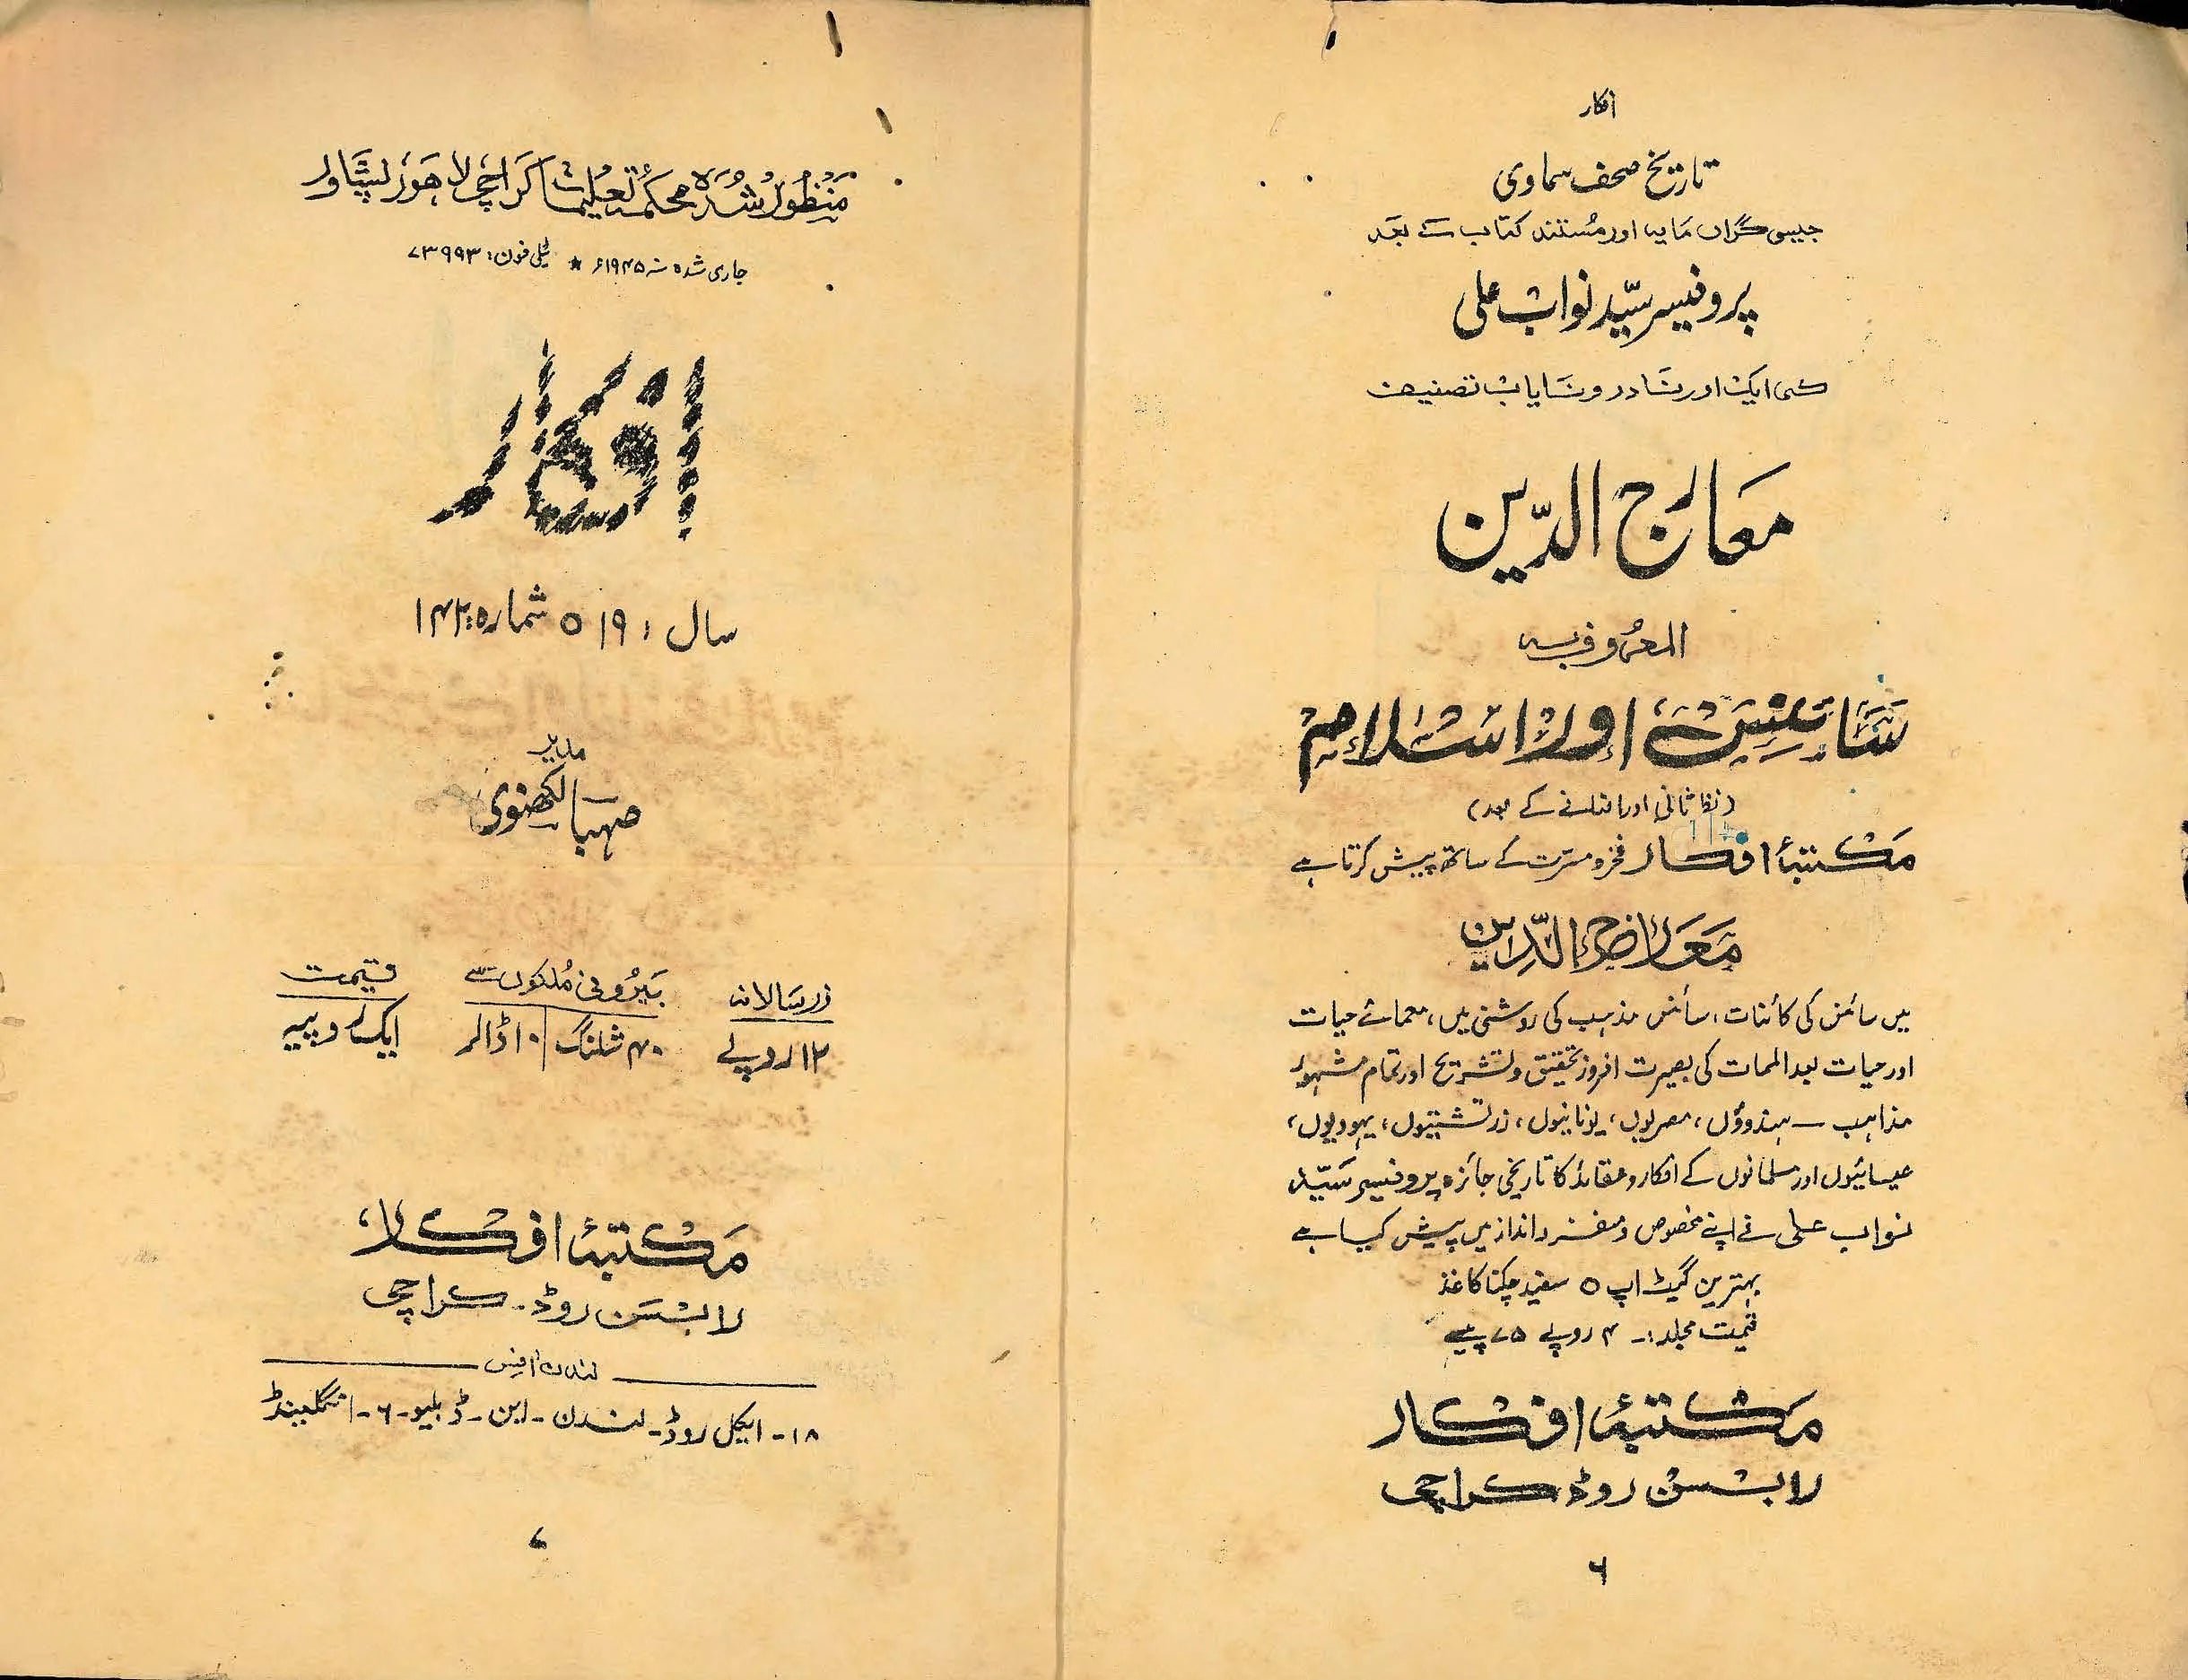 افکار
تاریخ صحف سماوی
جیسی گراں مایہ اور مستند کتاب کے بعد
پروفیسر سیّد نواب علی
کی ایک اور نادر و نایاب تصنیف
معارج الدّین
المعروف بہ
سائنس اور اسلام
(نظر ثانی اور اضافے کے بعد)
مکتبۂ افکار فخر و مسرّت کے ساتھ پیش کرتا ہے
معارج الدّین
میں سائنس کی کائنات، سائنس مذہب کی روشنی میں، معمائے حیات
اور حیات بعد الممات کی بصیرت افروز تحقیق و تشریح اور تمام مشہور
مذاہب — ہندوؤں، مصریوں، یونانیوں، زرتشتیوں، یہودیوں،
عیسائیوں اور مسلمانوں کے افکار و عقائد کا تاریخی جائزہ پروفیسر سیّد
نواب علی نے اپنے مخصوص و منفرد انداز میں پیش کیا ہے
بہترین گیٹ اپ ○ سفید چکنا کاغذ
قیمت مجلد:۔ ۴ روپے ۷۵ پیسے
مکتبۂ افکار
رابسن روڈ کراچی
۶
منظور شدہ محکمۂ تعلیمات کراچی لاہور پشاور
جاری شدہ سنہ ۱۹۴۵ء ★ ٹیلی فون: ۷۳۹۹۳
افکار
سال: ۱۹ ○ شمارہ: ۱۴۲
مدیر
صہبا لکھنوی
زر سالانہ
۱۲ روپے
بیرونی ملکوں سے
۲۰ شلنگ | ۱۰ ڈالر
قیمت
ایک روپیہ
مکتبۂ افکار،
رابسن روڈ۔ کراچی
لندن آفس
۱۸۔ ایکل روڈ۔ لندن۔ این۔ ڈبلیو۔ ۶۔ انگلینڈ
۷